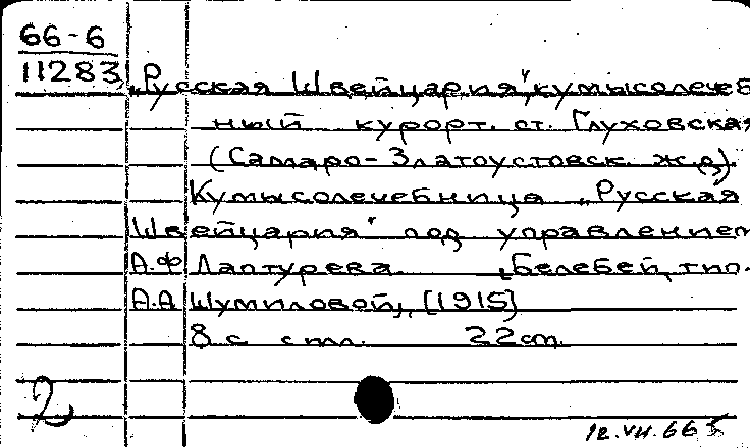 66-6
11283
„Русская Швейцария" кумысолечеб
ный курорт. ст. Глуховская
(Самаро-Златоустовск. ж.д.).
Кумысолечебница „Русская
Швейцария" под управлением
А.Ф. Лаптурева. Белебей, тип.
А.А Шумиловой, [1915]
8 с с тл. 22 cm.
2
12.VII.66